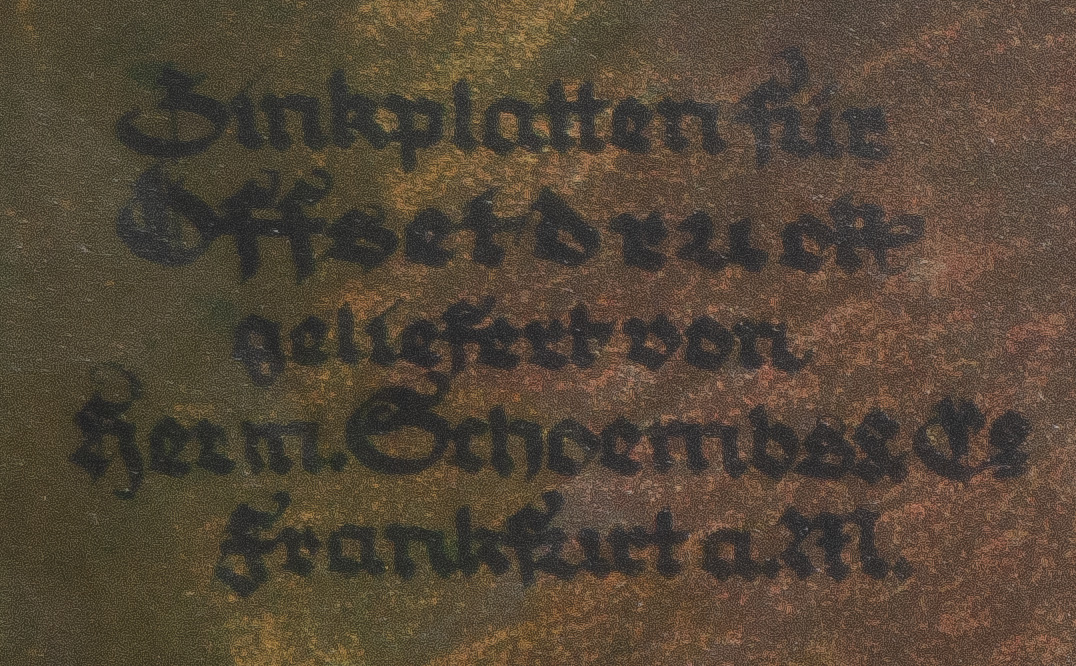 Zinkplatten für
Offsetdruck
geliefert von
Herm. Schoembs & Co
Frankfurt a. M.